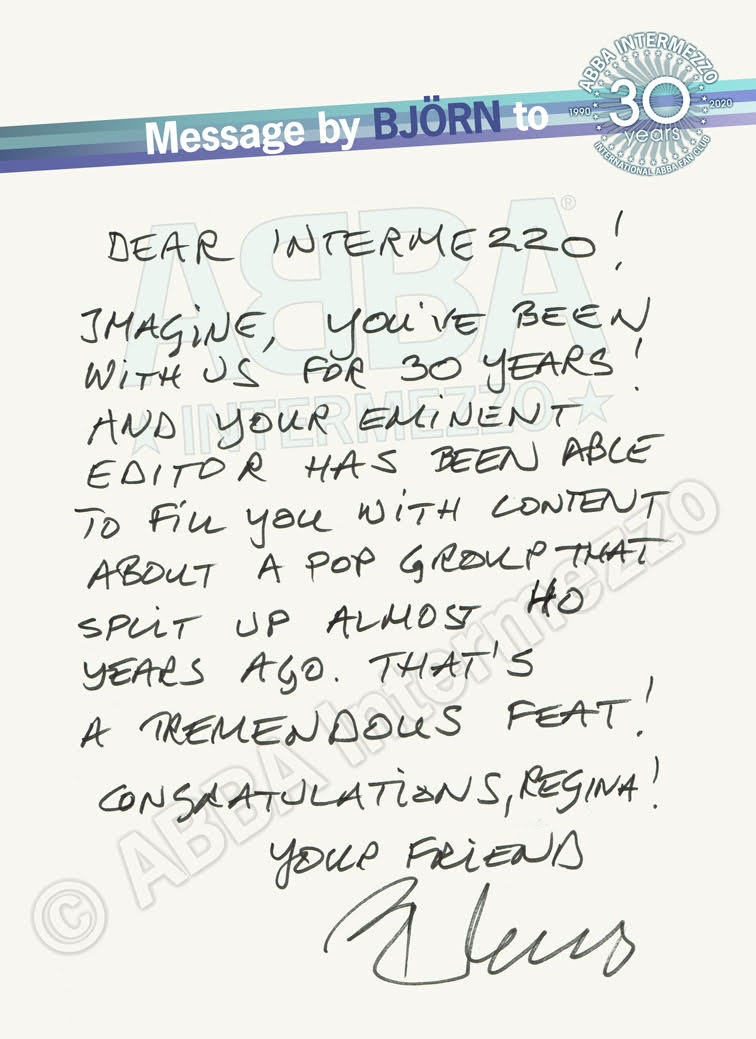 ABBA INTERMEZZO
1990 30 2020
years
INTERNATIONAL ABBA FAN CLUB
Message by BJÖRN to
ABBA®
INTERMEZZO
DEAR INTERMEZZO!
IMAGINE, YOU'VE BEEN
WITH US FOR 30 YEARS!
AND YOUR EMINENT
EDITOR HAS BEEN ABLE
TO FILL YOU WITH CONTENT
ABOUT A POP GROUP THAT
SPLIT UP ALMOST 40
YEARS AGO. THAT'S
A TREMENDOUS FEAT!
CONGRATULATIONS, REGINA!
YOUR FRIEND
© ABBA Intermezzo